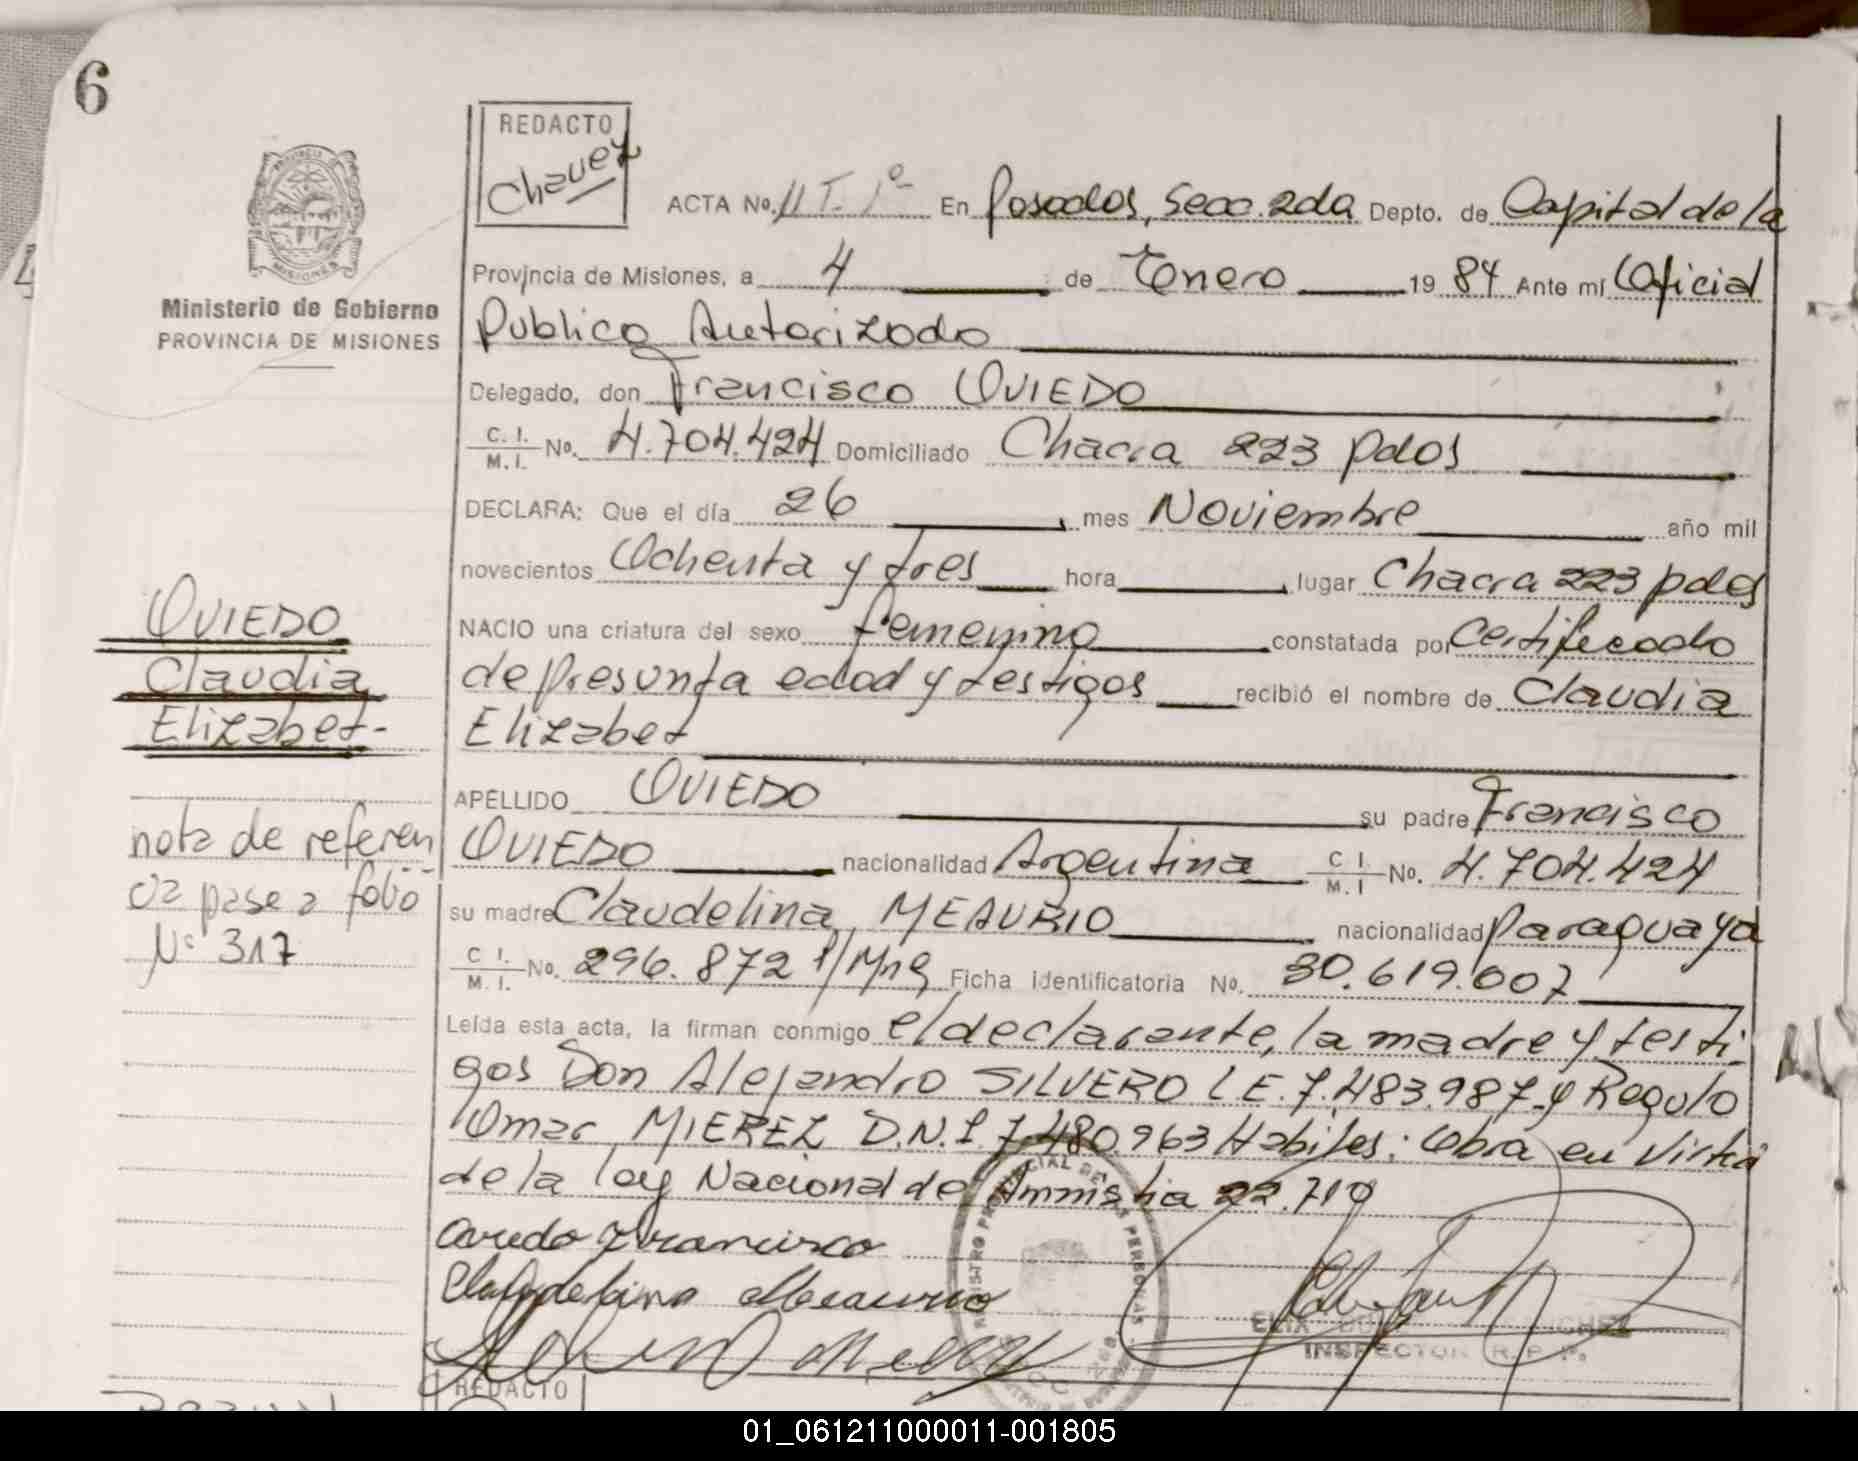 6
REDACTO
Chavez
ACTA No. 11 T. 1º En Posadas, Secc. 2da Depto. de Capital de la
Provincia de Misiones, a 4 de Enero 1984 Ante mi Oficial
Ministerio de Gobierno
PROVINCIA DE MISIONES
Publico Autorizado
Delegado, don Francisco OVIEDO
C. I. M. I. No. 4.704.424 Domiciliado Chacra 223 Pdas
DECLARA: Que el día 26 mes Noviembre año mil
novecientos Ochenta y tres hora lugar Chacra 223 pdas
OVIEDO
Claudia
Elizabet-
NACIO una criatura del sexo femenino constatada por Certificado
de Presunta edad y testigos recibió el nombre de Claudia
Elizabet
APELLIDO OVIEDO su padre Francisco
nota de referen
cia pase a folio
Nº 317
OVIEDO nacionalidad Argentina C. I. M. I No. 4.704.424
su madre Claudelina MEAURIO nacionalidad paraguaya
C. I. M. I. No. 296.872 Ficha identificatoria No. 30.619.007
Leída esta acta, la firman conmigo el declarante, la madre y testi
gos Don Alejandro SILVERO L.E. 7.483.987 y Regulo
Omar MIEREZ D.N.I 7.480.963 Habiles: Obra en virtu
de la ley Nacional de Amnistia 22.710
Oviedo Francisco
Claudelina Meaurio
REGISTRO PROVINCIAL DE LAS PERSONAS
INSPECTOR R. P. P.
REDACTO
01_061211000011-001805